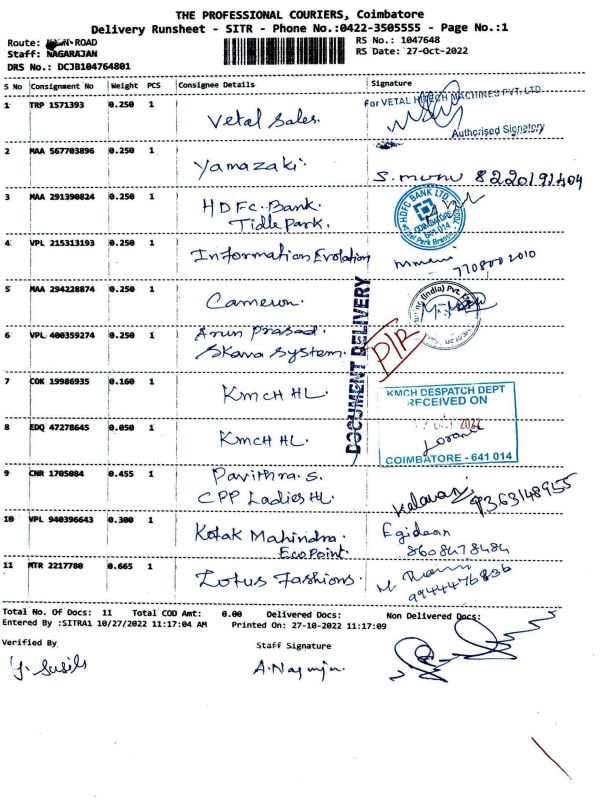 THE PROFESSIONAL COURIERS, Coimbatore
Delivery Runsheet - SITR - Phone No.:0422-3505555 - Page No.:1
Route: -ROAD
RS No.: 1047648
Staff: NAGARAJAN
RS Date: 27-Oct-2022
DRS No.: DCJB104764801
S No Consignment No Weight PCS Consignee Details Signature
1 TRP 1571393 0.250 1 Vetal Sales.
For VETAL HITECH MACHINES PVT. LTD.
Authorised Signatory
2 MAA 567703896 0.250 1 Yamazaki. 8220191404
3 MAA 291390824 0.250 1 HDFC. Bank.
Tidle Park.
HDFC BANK LTD
COIMBATORE
641 014
4 VPL 215313193 0.250 1 Information Evolation
7708002010
5 MAA 294228874 0.250 1 Camerun.
(India) Pvt.
DOCUMENT DELIVERY
6 VPL 400359274 0.250 1 Arun Prasad.
Skava System.
P/R
7 COK 19986935 0.160 1 KMCH HL.
KMCH DESPATCH DEPT
RECEIVED ON
2022
8 EDQ 47278645 0.050 1 KMCH HL.
COIMBATORE - 641 014
9 CNR 1705084 0.455 1 Pavithra. S.
CPP Ladies HL. 9363148955
10 VPL 940396643 0.300 1 Kotak Mahindra.
EcoPoint.
8608478484
11 MTR 2217780 0.665 1 Lotus Fashions.
9944476836
Total No. Of Docs: 11 Total COD Amt: 0.00 Delivered Docs: Non Delivered Docs:
Entered By :SITRA1 10/27/2022 11:17:04 AM Printed On: 27-10-2022 11:17:09
Verified By Staff Signature